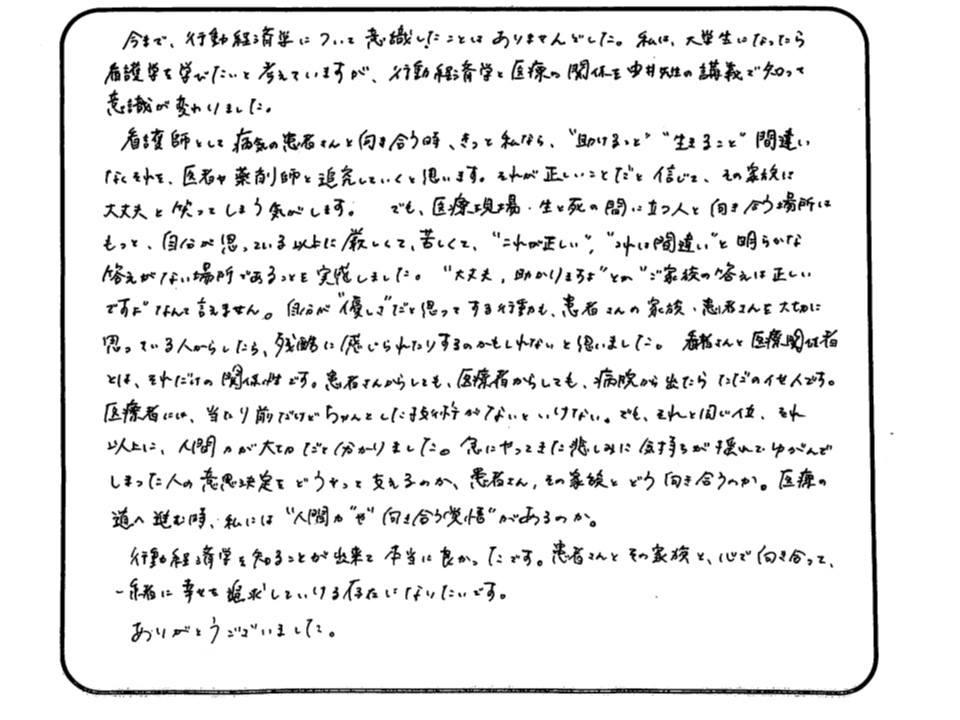 今まで、行動経済学について意識したことはありませんでした。私は、大学生になったら
看護学を学びたいと考えていますが、行動経済学と医療の関係を中井先生の講義で知って
意識が変わりました。
看護師として病気の患者さんと向き合う時、きっと私なら、"助けること" "生きること" 間違い
なくそれを、医者や薬剤師と追究していくと思います。それが正しいことだと信じて、その家族に
大丈夫と笑ってしまう気がします。 でも、医療現場・生と死の間に立つ人と向き合う場所は
もっと、自分が思っている以上に厳しくて、苦しくて、"これが正しい", "これは間違い"と明らかな
答えがない場所であることを実感しました。 "大丈夫, 助かりますよ"とか"ご家族の答えは正しい
ですよ"なんて言えません。自分が"優しさ"だと思ってする行動も、患者さんの家族・患者さんを大切に
思っている人からしたら、残酷に感じられたりするのかもしれないと思いました。 患者さんと医療関係者
とは、それだけの関係性です。患者さんからしても、医療者からしても、病院から出たらただの他人です。
医療者には、当たり前だけどちゃんとした技術がないといけない。でも、それと同じ位、それ
以上に、人間力が大切だと分かりました。急にやってきた悲しみに気持ちが揺れてゆがんで
しまった人の意思決定をどうやって支えるのか、患者さん, その家族とどう向き合うのか。医療の
道へ進む時、私には"人間力"や"向き合う覚悟"があるのか。
行動経済学を知ることが出来て本当に良かったです。患者さんとその家族と、心で向き合って、
一緒に幸せを追求していける存在になりたいです。
ありがとうございました。